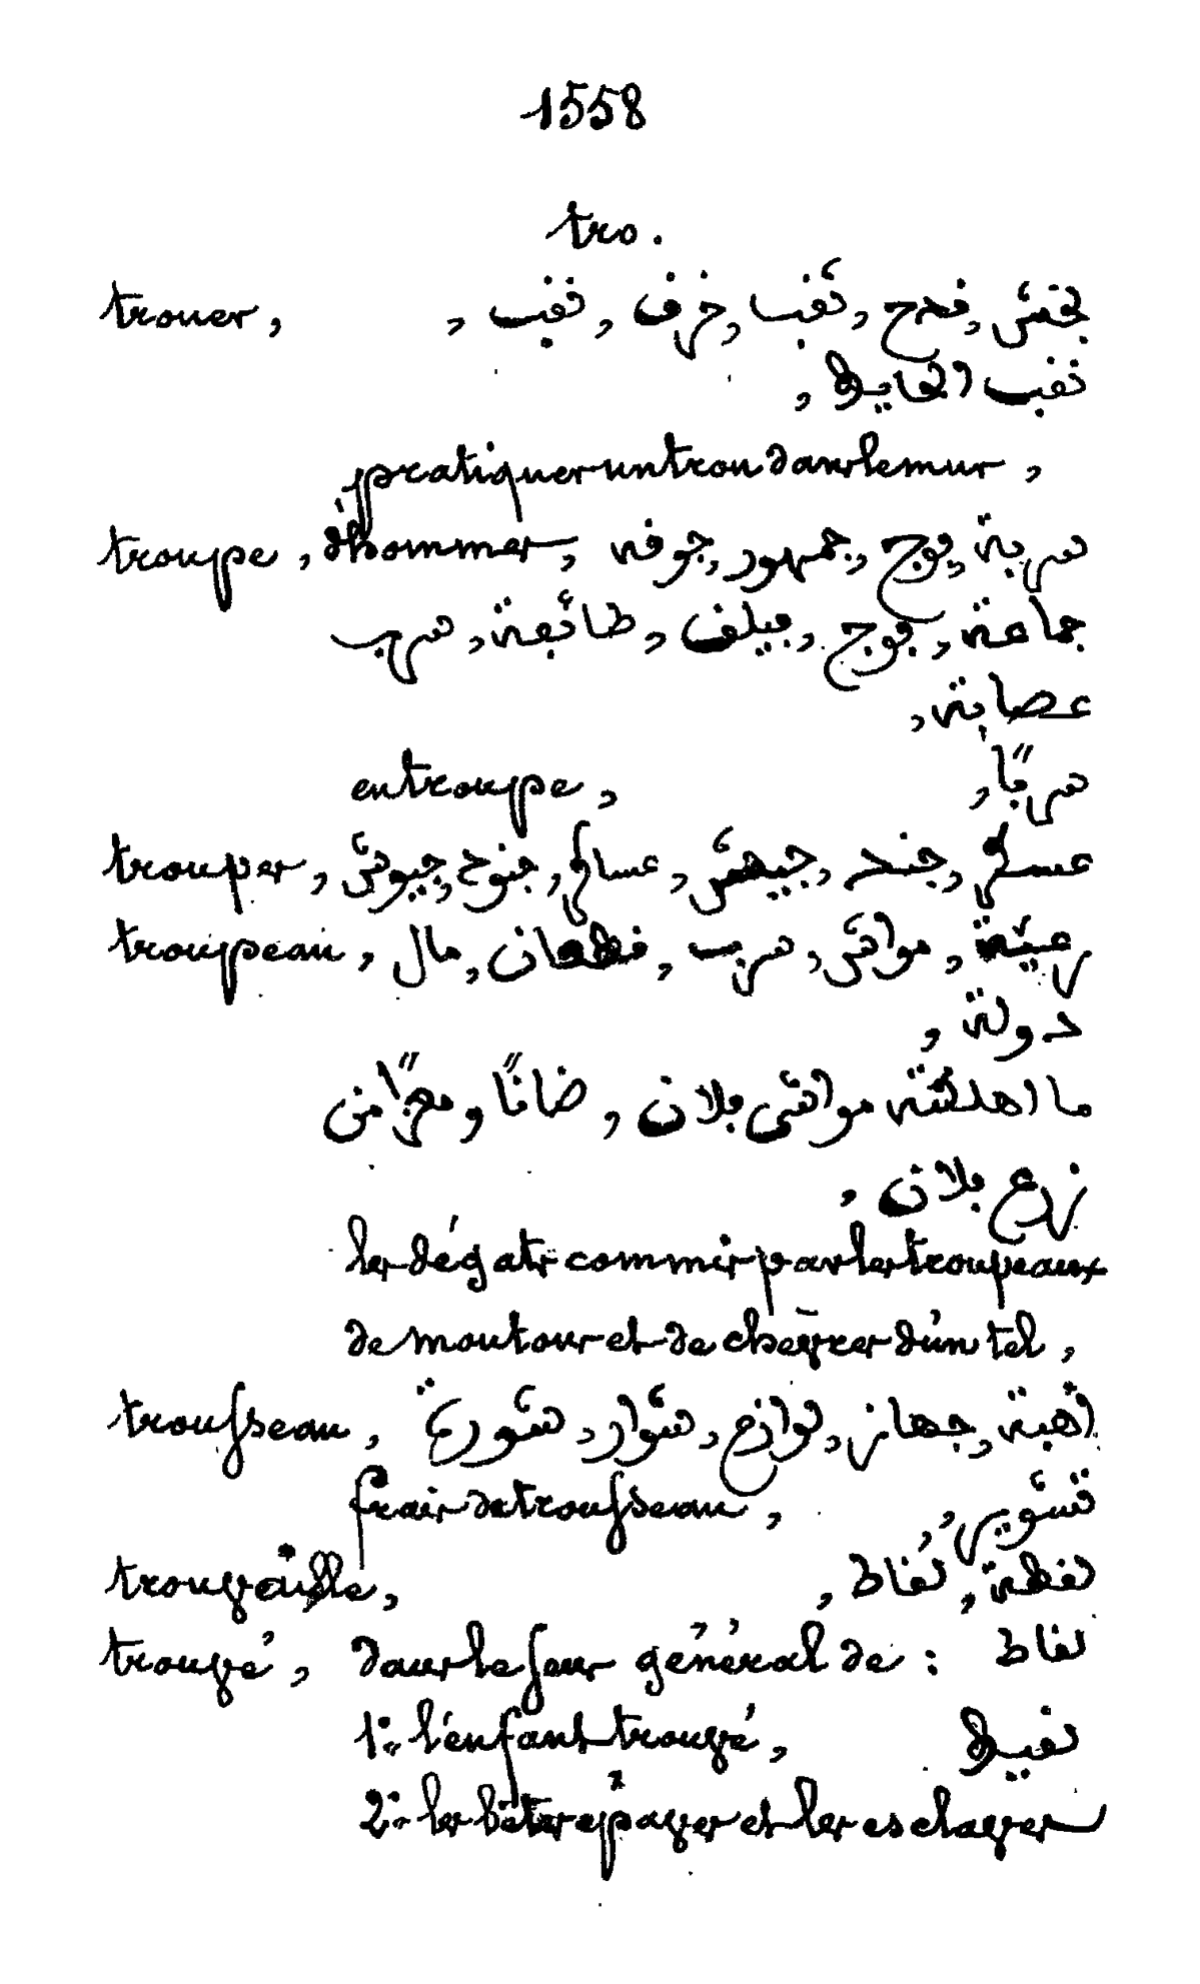 1558
tro.
trouer, بخش, قدح, ثقب, خرق, نقب,
نقب الحايط,
pratiquer un trou dans le mur,
troupe, d'hommes, سربة, فوج, جمهور, جوقه
جماعة, فوج, طائفة, سرب
عصابة,
en troupe, سربًا,
troupes, عسكر, جند, جيش, عساكر, جنود, جيوش
troupeau, رعيّة, مواش, سرب, قطعان, مال,
دولة,
ما اهلكته مواشى فلان, ضانًا و معزًا من
زرع فلان,
les dégats commis par les troupeaux
de moutons et de chèvres d'un tel,
trousseau, أهبة, جهاز, لوازم, شوار, شورة
frais de trousseau, تشوير,
trouvaille, لقطة, لقاط,
trouvé, dans le sens général de: لقاط
1° l'enfant trouvé, لقيط
2° les bêtes épaves et les esclaves